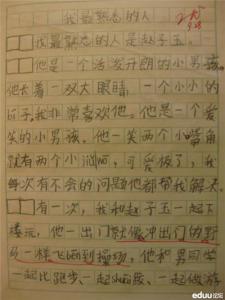 我最熟悉的人
我最熟悉的人是赵子玉。
他是一个活泼开朗的小男孩。
他长着一双大眼睛，一个小小的
我非常喜欢他。他是一个爱
笑的小男孩，他一笑两个小嘴角
就有两个小酒窝，可爱极了，我
每次有不会的问题他都帮我解决。
有一次，我和赵子玉一起下
楼玩，他一出门就像冲出们的野
马一样飞跑到操场，他和男同学
一起比跑步、一起、一起做游
eduu论坛